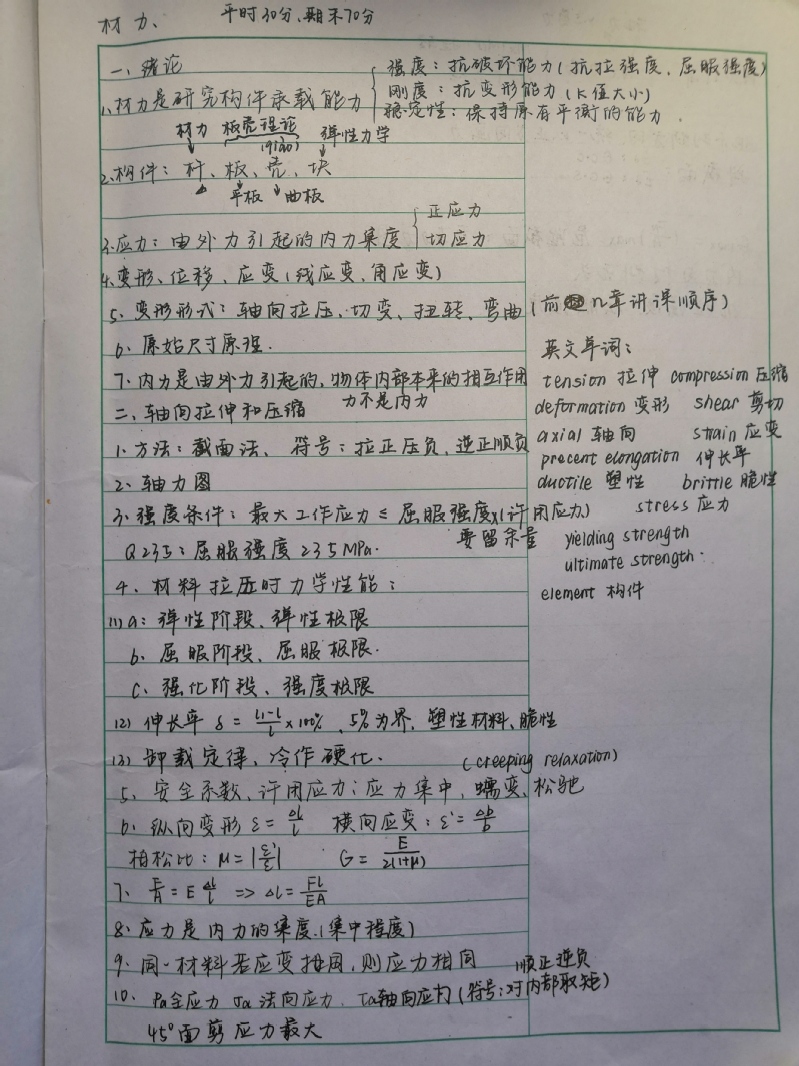 材力、 平时30分、期末70分
一、绪论
强度：抗破坏能力(抗拉强度、屈服强度)
1、材力是研究构件承载能力
刚度：抗变形能力(K值大小)
稳定性：保持原有平衡的能力.
材力 板壳理论 弹性力学
2、构件：杆、板、壳、块
平板 曲板
正应力
3、应力：由外力引起的内力集度
切应力
4、变形、位移、应变(线应变、角应变)
5、变形形式：轴向拉压、切变、扭转、弯曲(前 n章讲课顺序)
6、原始尺寸原理.
7、内力是由外力引起的,物体内部本来的相互作用
力不是内力
二、轴向拉伸和压缩
1、方法：截面法、 符号：拉正压负,逆正顺负
2、轴力图
3、强度条件：最大工作应力≤屈服强度(许用应力)
要留余量
Q235：屈服强度235MPa.
4、材料拉压时力学性能：
(1)a：弹性阶段、弹性极限
b、屈服阶段、屈服极限.
c、强化阶段、强度极限
(2)伸长率 δ=(l1-l)/l×100%、5%为界,塑性材料、脆性
(3)卸载定律、冷作硬化.
(creeping relaxation)
5、安全系数、许用应力；应力集中、蠕变、松驰
6、纵向变形 ε=Δl/l 横向应变：ε'=Δb/b
柏松比：μ=|ε'/ε| G=E/2(1+μ)
7、F/A=E Δl/l => Δl=Fl/EA
8、应力是内力的集度.(集中程度)
9、同一材料若应变相同,则应力相同
顺正逆负
10、Pα全应力 σα法向应力、τα轴向应力(符号：对内部取矩)
45°面剪应力最大
英文单词：
tension 拉伸 compression 压缩
deformation 变形 shear 剪切
axial 轴向 strain 应变
precent elongation 伸长率
ductile 塑性 brittle 脆性
stress 应力
yielding strength
ultimate strength.
element 构件